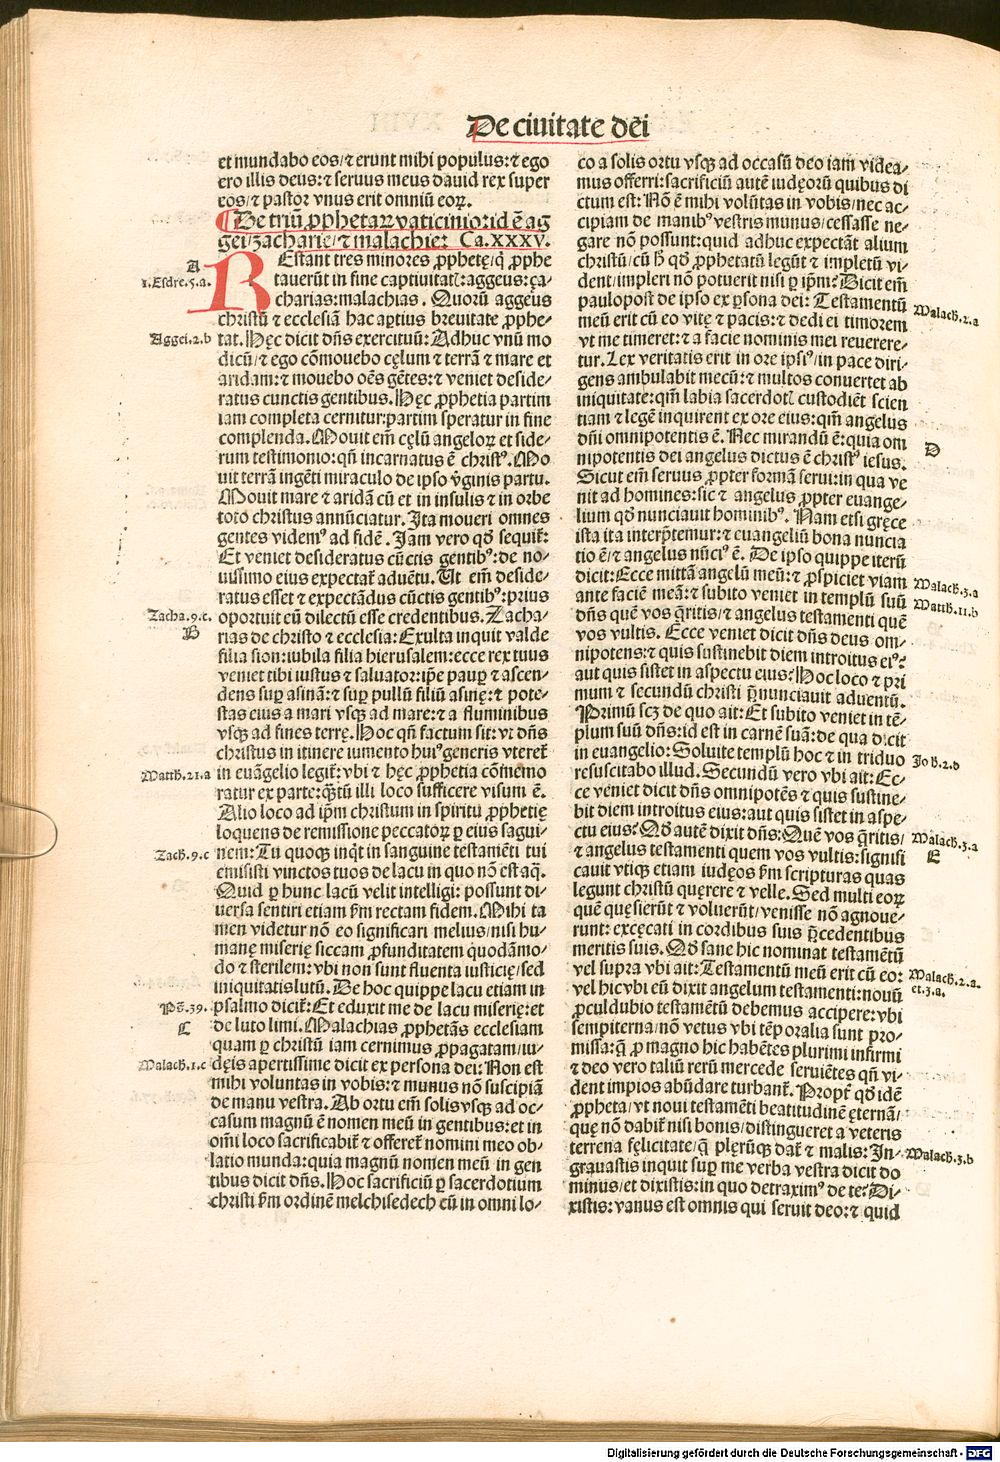 De ciuitate dei
et mundabo eos/⁊ erunt mihi populus:⁊ ego
ero illis deus:⁊ seruus meus dauid rex super
eos/⁊ pastor vnus erit omniū eoꝝ.
¶ De triū ꝓphetaꝝ vaticinio:id ē ag
gei/zacharie/⁊ malachie: Ca.XXXV.
A
REstant tres minores ꝓphetę/q̇ ꝓphe
1.Esdre.5.a.
tauerūt in fine captiuitatꝭ:aggeus:ça-
charias:malachias. Quorū aggeus
christū ⁊ ecclesiā hac aꝑtius breuitate ꝓphe-
Aggei.2.b
tat. Hęc dicit dn̄s exercituū: Adhuc vnū mo
dicū/⁊ ego cōmouebo cęlum ⁊ terrā ⁊ mare et
aridam:⁊ mouebo oēs gētes:⁊ veniet deside-
ratus cunctis gentibus. Hęc ꝓphetia partim
iam completa cernitur:partim speratur in fine
complenda. Mouit em̄ cęlū angeloꝝ et side-
rum testimonio:qn̄ incarnatus ē christꝰ. Mo
uit terrā ingēti miraculo de ipso v̄ginis partu.
Mouit mare ⁊ aridā cū et in insulis ⁊ in orbe
toto christus annūciatur. Ita moueri omnes
gentes videmꝰ ad fidē. Iam vero qđ sequit᷑:
Et veniet desideratus cūctis gentibꝰ:de no-
uissimo eius expectat᷑ aduētu. Ut em̄ deside-
ratus esset ⁊ expectādus cūctis gentibꝰ:prius
Zacha.9.c.
oportuit eū dilectū esse credentibus. Zacha-
B
rias de christo ⁊ ecclesia: Exulta inquit valde
filia sion:iubila filia hierusalem:ecce rex tuus
veniet tibi iustus ⁊ saluator:ip̄e pauꝑ ⁊ ascen-
dens suꝑ asinā:⁊ suꝑ pullū filiū asinę:⁊ pote-
stas eius a mari vsqꝫ ad mare:⁊ a fluminibus
vsqꝫ ad fines terrę. Hoc qn̄ factum sit:vt dn̄s
christus in itinere iumento huiꝰ generis vteret᷑
Matth.21.a
in euāgelio legit᷑:vbi ⁊ hęc ꝓphetia cōmemo
ratur ex parte:q̄ꝫtū illi loco sufficere visum ē.
Alio loco ad ip̄m christum in spiritu ꝓphetię
loquens de remissione peccatoꝝ ꝑ eius sagui-
Zach.9.c
nem: Tu quoqꝫ inq̇t in sanguine testamēti tui
emisisti vinctos tuos de lacu in quo nō est aq̄.
Quid ꝑ hunc lacū velit intelligi: possunt di-
uersa sentiri etiam ẜm rectam fidem. Mihi ta
men videtur nō eo significari melius/nisi hu-
manę miserię siccam ꝓfunditatem quodāmo-
do ⁊ sterilem:vbi non sunt fluenta iusticię/sed
iniquitatis lutū. De hoc quippe lacu etiam in
Ps.39.
psalmo dicit᷑: Et eduxit me de lacu miserię:et
C
de luto limi. Malachias ꝓphetās ecclesiam
quam ꝑ christū iam cernimus ꝓpagatam/iu-
Malach.1.c
dęis apertissime dicit ex persona dei: Non est
mihi voluntas in vobis:⁊ munus nō suscipiā
de manu vestra. Ab ortu em̄ solis vsqꝫ ad oc-
casum magnū ē nomen meū in gentibus:et in
om̄i loco sacrificabit᷑ ⁊ offeret᷑ nomini meo ob-
latio munda:quia magnū nomen meū in gen
tibus dicit dn̄s. Hoc sacrificiū ꝑ sacerdotium
christi ẜm ordinē melchisedech cū in omni lo-
co a solis ortu vsqꝫ ad occasū deo iam videa-
mus offerri:sacrificiū autē iudęorū quibus di
ctum est: Nō ē mihi volūtas in vobis/nec ac-
cipiam de manibꝰ vestris munus/cessasse ne-
gare nō possunt:quid adhuc expectāt alium
christū/cū h̄ qđ ꝓphetatū legūt ⁊ impletū vi-
dent/impleri nō potuerit nisi ꝑ ip̄m: Dicit em̄
paulopost de ipso ex ꝑsona dei: Testamentū
Malach.2.a
meū erit cū eo vitę ⁊ pacis:⁊ dedi ei timorem
vt me timeret:⁊ a facie nominis mei reuerere-
tur. Lex veritatis erit in ore ipsiꝰ/in pace diri-
gens ambulabit mecū:⁊ multos conuertet ab
iniquitate:qm̄ labia sacerdotꝭ custodiēt scien
tiam ⁊ legē inquirent ex ore eius:qm̄ angelus
dn̄i omnipotentis ē. Nec mirandū ē:quia om
D
nipotentis dei angelus dictus ē christꝰ iesus.
Sicut em̄ seruus ꝓpter formā serui:in qua ve
nit ad homines:sic ⁊ angelus ꝓpter euange-
lium qđ nunciauit hominibꝰ. Nam etsi gręce
ista ita interp̄temur:⁊ euangeliū bona nuncia
tio ē/⁊ angelus nūciꝰ ē. De ipso quippe iterū
dicit: Ecce mittā angelū meū:⁊ ꝓspiciet viam
Malach.3.a
ante faciē meā:⁊ subito veniet in templū suū
Matth.11.b
dn̄s quē vos q̄ritis/⁊ angelus testamenti quē
vos vultis. Ecce veniet dicit dn̄s deus om-
nipotens:⁊ quis sustinebit diem introitus eiꝰ:
aut quis sistet in aspectu eius: Hoc loco ⁊ pri
mum ⁊ secundū christi p̄nunciauit aduentū.
Primū scꝫ de quo ait: Et subito veniet in tē-
plum suū dn̄s:id est in carnē suā:de qua dicit
in euangelio: Soluite templū hoc ⁊ in triduo
Joh.2.d
resuscitabo illud. Secundū vero vbi ait: Ec-
ce veniet dicit dn̄s omnipotēs ⁊ quis sustine-
bit diem introitus eius:aut quis sistet in aspe-
ctu eius: Qđ autē dixit dn̄s: Quē vos q̄ritis/
Malach.3.a
⁊ angelus testamenti quem vos vultis: signifi
E
cauit vtiqꝫ etiam iudęos ẜm scripturas quas
legunt christū quęrere ⁊ velle. Sed multi eoꝝ
quē quęsierūt ⁊ voluerūt/venisse nō agnoue-
runt: excęcati in cordibus suis p̄cedentibus
meritis suis. Qđ sane hic nominat testamētū
vel supra vbi ait: Testamentū meū erit cū eo:
Malach.2.a.
vel hic vbi eū dixit angelum testamenti:nouū
et.3.a.
ꝓculdubio testamētū debemus accipere:vbi
sempiterna/nō vetus vbi tēꝑoralia sunt pro-
missa:q̄ ꝓ magno hic habētes plurimi infirmi
⁊ deo vero taliū rerū mercede seruiētes qn̄ vi-
dent impios abūdare turbant᷑. Propt᷑ qđ idē
ꝓpheta/vt noui testamēti beatitudinē ęternā/
quę nō dabit᷑ nisi bonis/distingueret a veteris
terrena fęlicitate/q̄ plęrūqꝫ dat᷑ ⁊ malis: In-
Malach.3.b
grauastis inquit suꝑ me verba vestra dicit do
minus/et dixistis:in quo detraximꝰ de te: Di-
xistis:vanus est omnis qui seruit deo:⁊ quid
Digitalisierung gefördert durch die Deutsche Forschungsgemeinschaft - DFG